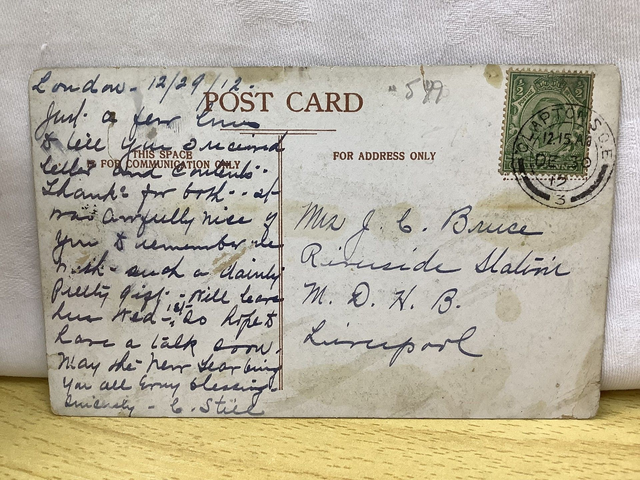 London - 12/29/12.
POST CARD
549
Just a few lines
to tell you I received
letter and contents.
THIS SPACE
FOR COMMUNICATION ONLY
FOR ADDRESS ONLY
Thanks for both - it
was awfully nice of
you to remember me
with such a dainty
pretty gift - Will leave
here Wed - 1st - So hope to
have a talk soon.
May the New Year bring
you all every blessing
Sincerely - C. Still
Mrs J. C. Bruce
Riverside Station
M. D. H. B.
Liverpool
CLAPTON S.O. N.E.
12.15 AM
DE 30
12
3